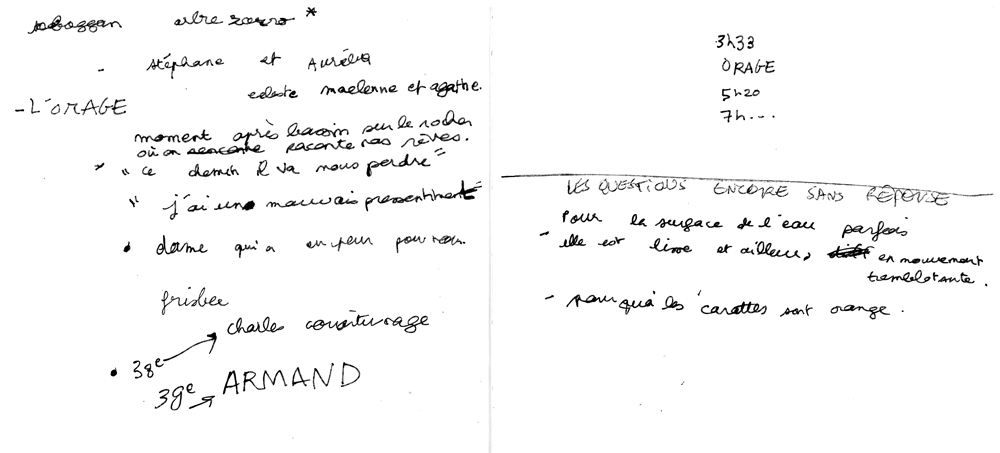 toboggan arbre zorro *
- Stéphane et Aurélia
celeste maelenne et agathe.
- L'ORAGE
moment après bassin sur le rocher
où on raconte nos rêves.
* "ce chemin il va nous perdre"
" j'ai un mauvais pressentiment"
• dame qui a eu peur pour nous.
frisbee
• 38e → charles covoiturage
39e → ARMAND
3h33
ORAGE
5h20
7h...
LES QUESTIONS ENCORE SANS RÉPONSE
- Pour la surface de l'eau parfois
elle est lisse et ailleurs, en mouvement
tremblotante.
- pourquoi les carottes sont orange.